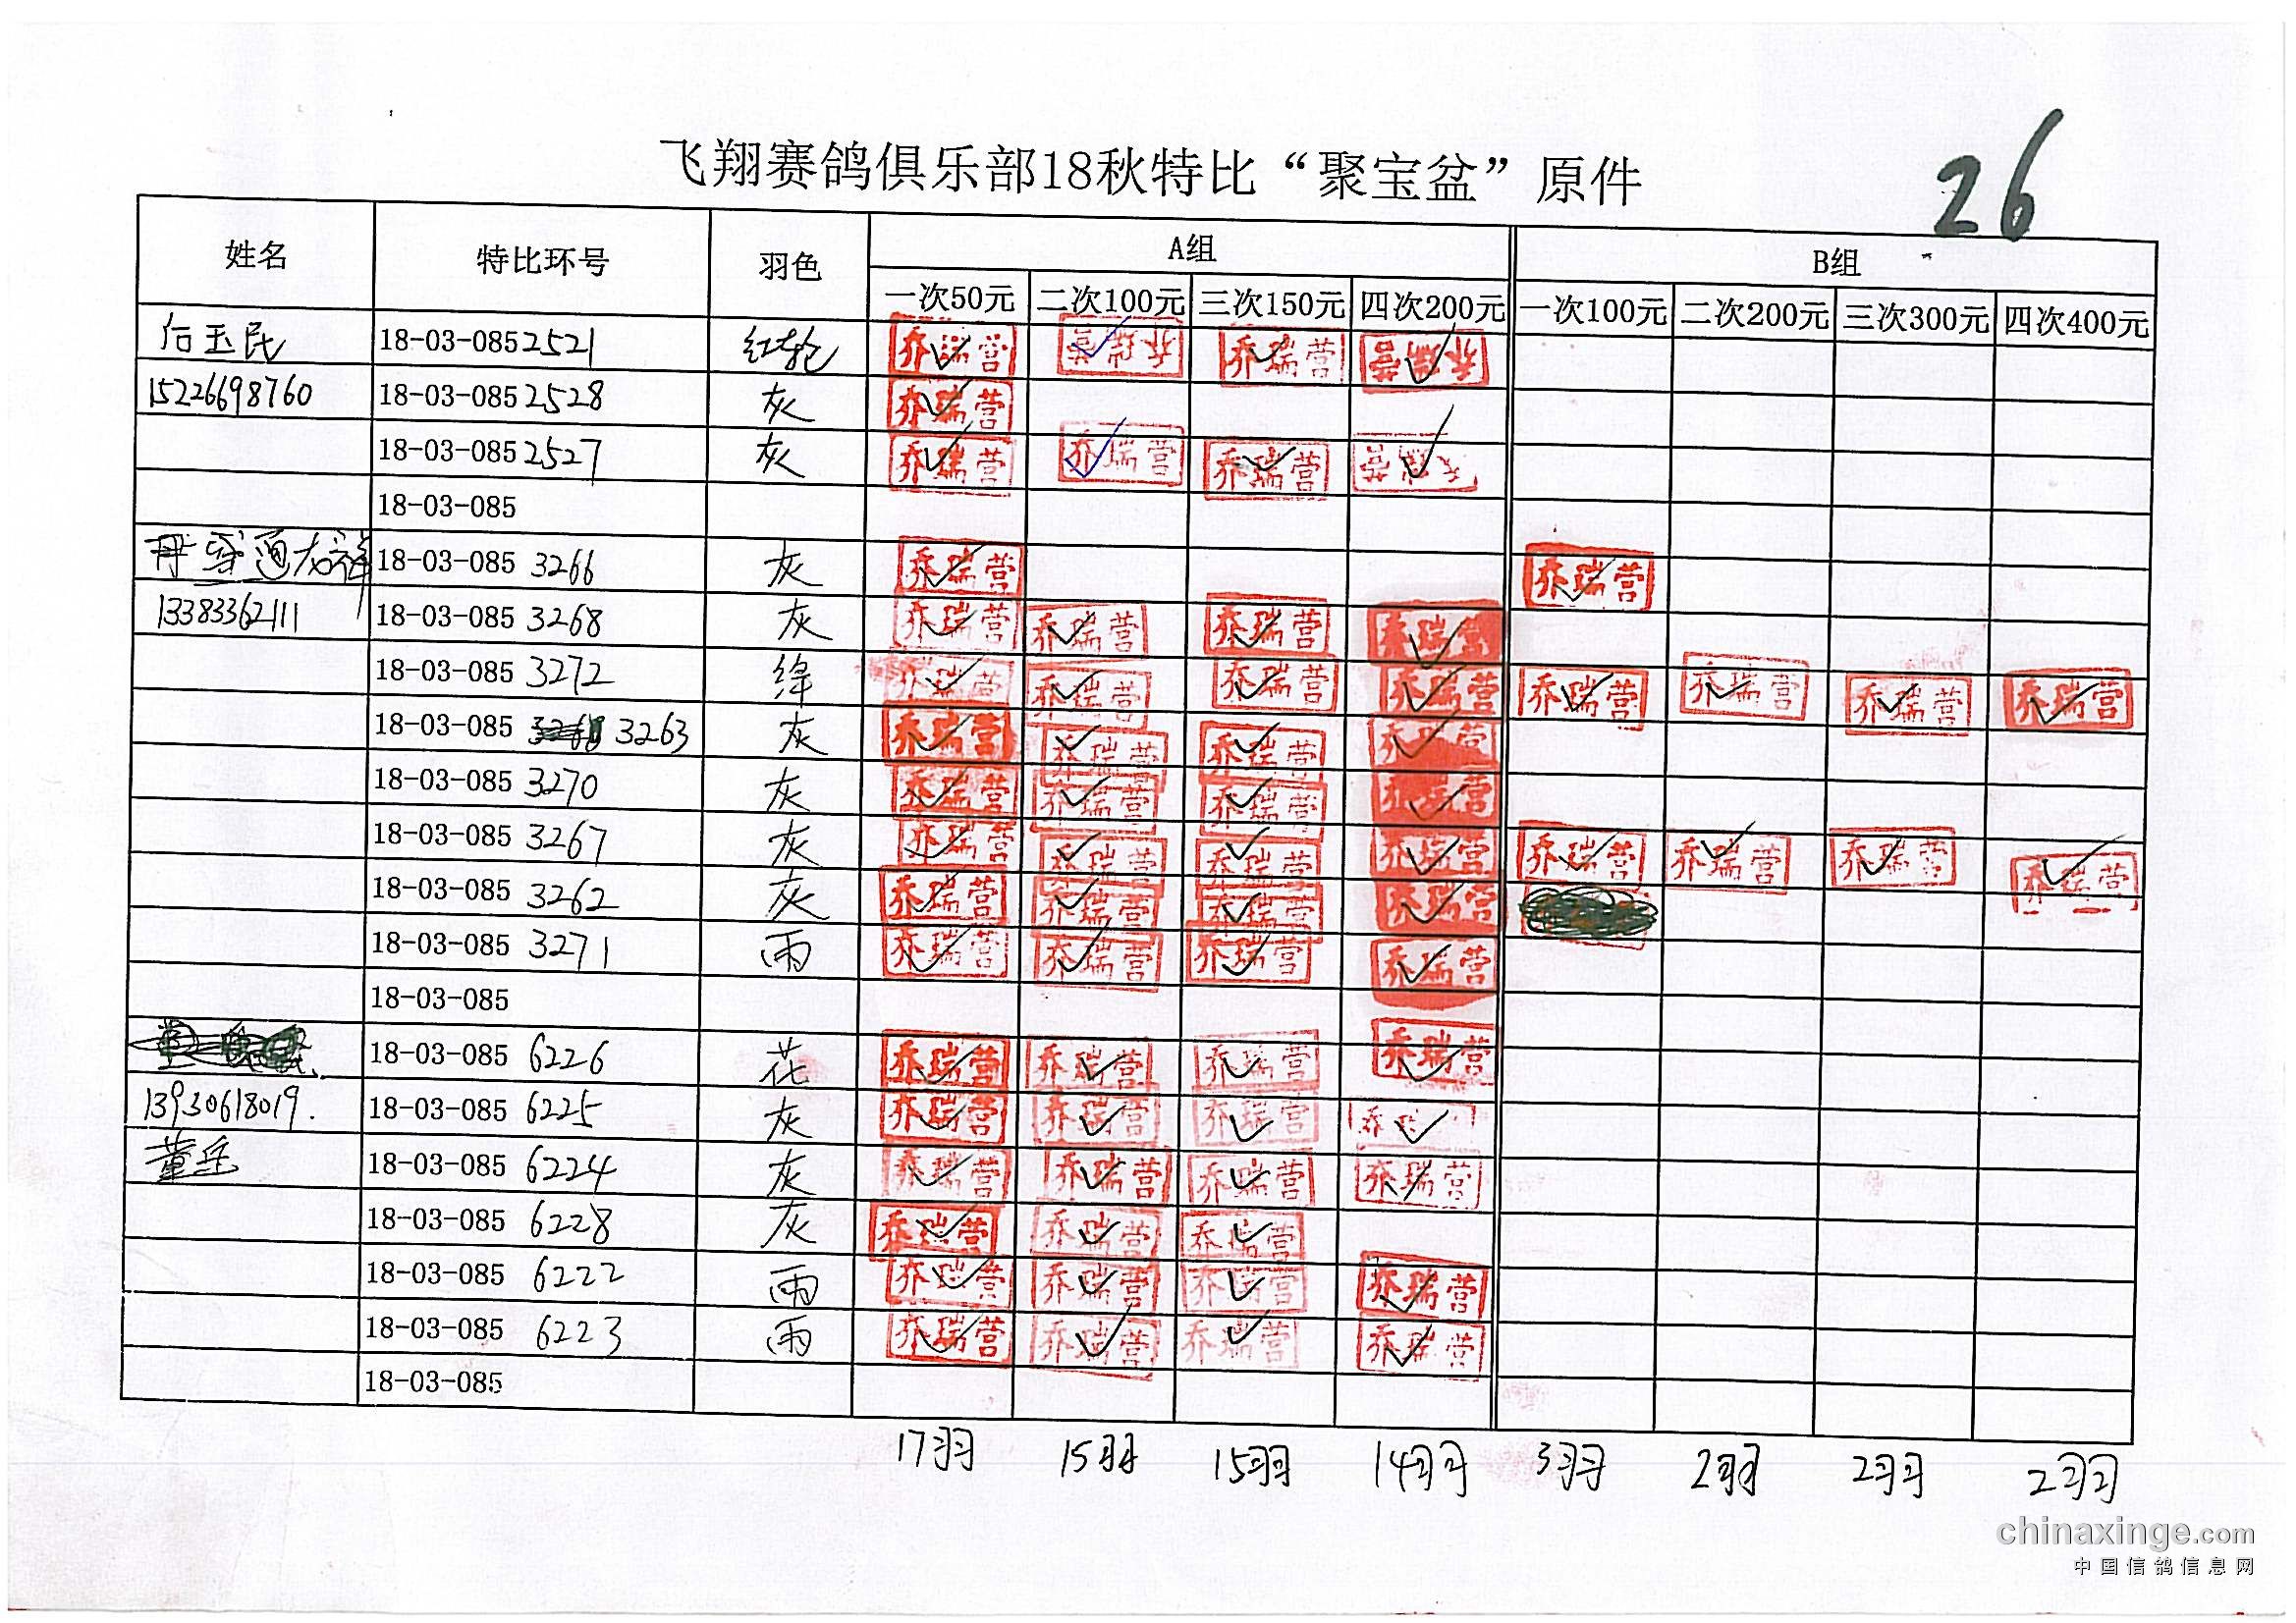 飞翔赛鸽俱乐部18秋特比“聚宝盆”原件
26
姓名 特比环号 羽色 A组 B组
一次50元 二次100元 三次150元 四次200元 一次100元 二次200元 三次300元 四次400元
石玉民 18-03-085 2521 红轮 乔瑞营 乔瑞营 乔瑞营 乔瑞营
15226698760 18-03-085 2528 灰 乔瑞营
18-03-085 2527 灰 乔瑞营 乔瑞营 乔瑞营 乔瑞营
18-03-085
18-03-085 3266 灰 乔瑞营 乔瑞营
13383362111 18-03-085 3268 灰 乔瑞营 乔瑞营 乔瑞营 乔瑞营
18-03-085 3272 绛 乔瑞营 乔瑞营 乔瑞营 乔瑞营 乔瑞营 乔瑞营 乔瑞营 乔瑞营
18-03-085 3263 灰 乔瑞营 乔瑞营 乔瑞营 乔瑞营
18-03-085 3270 灰 乔瑞营 乔瑞营 乔瑞营 乔瑞营
18-03-085 3267 灰 乔瑞营 乔瑞营 乔瑞营 乔瑞营 乔瑞营 乔瑞营 乔瑞营 乔瑞营
18-03-085 3262 灰 乔瑞营 乔瑞营 乔瑞营 乔瑞营
18-03-085 3271 雨 乔瑞营 乔瑞营 乔瑞营 乔瑞营
18-03-085
18-03-085 6226 花 乔瑞营 乔瑞营 乔瑞营 乔瑞营
13930618019. 18-03-085 6225 灰 乔瑞营 乔瑞营 乔瑞营 乔瑞
董岳 18-03-085 6224 灰 乔瑞营 乔瑞营 乔瑞营 乔瑞营
18-03-085 6228 灰 乔瑞营 乔瑞营 乔瑞营
18-03-085 6222 雨 乔瑞营 乔瑞营 乔瑞营 乔瑞营
18-03-085 6223 雨 乔瑞营 乔瑞营 乔瑞营 乔瑞营
18-03-085
17羽 15羽 15羽 14羽 3羽 2羽 2羽 2羽
chinaxinge.com
中国信鸽信息网